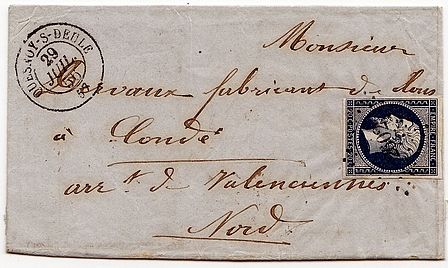 QUESNOY-S-DEULE
29
JUIL
Monsieur
Devaux fabricant de
à Condé
arr.t de Valenciennes
Nord
EMPIRE FRANC